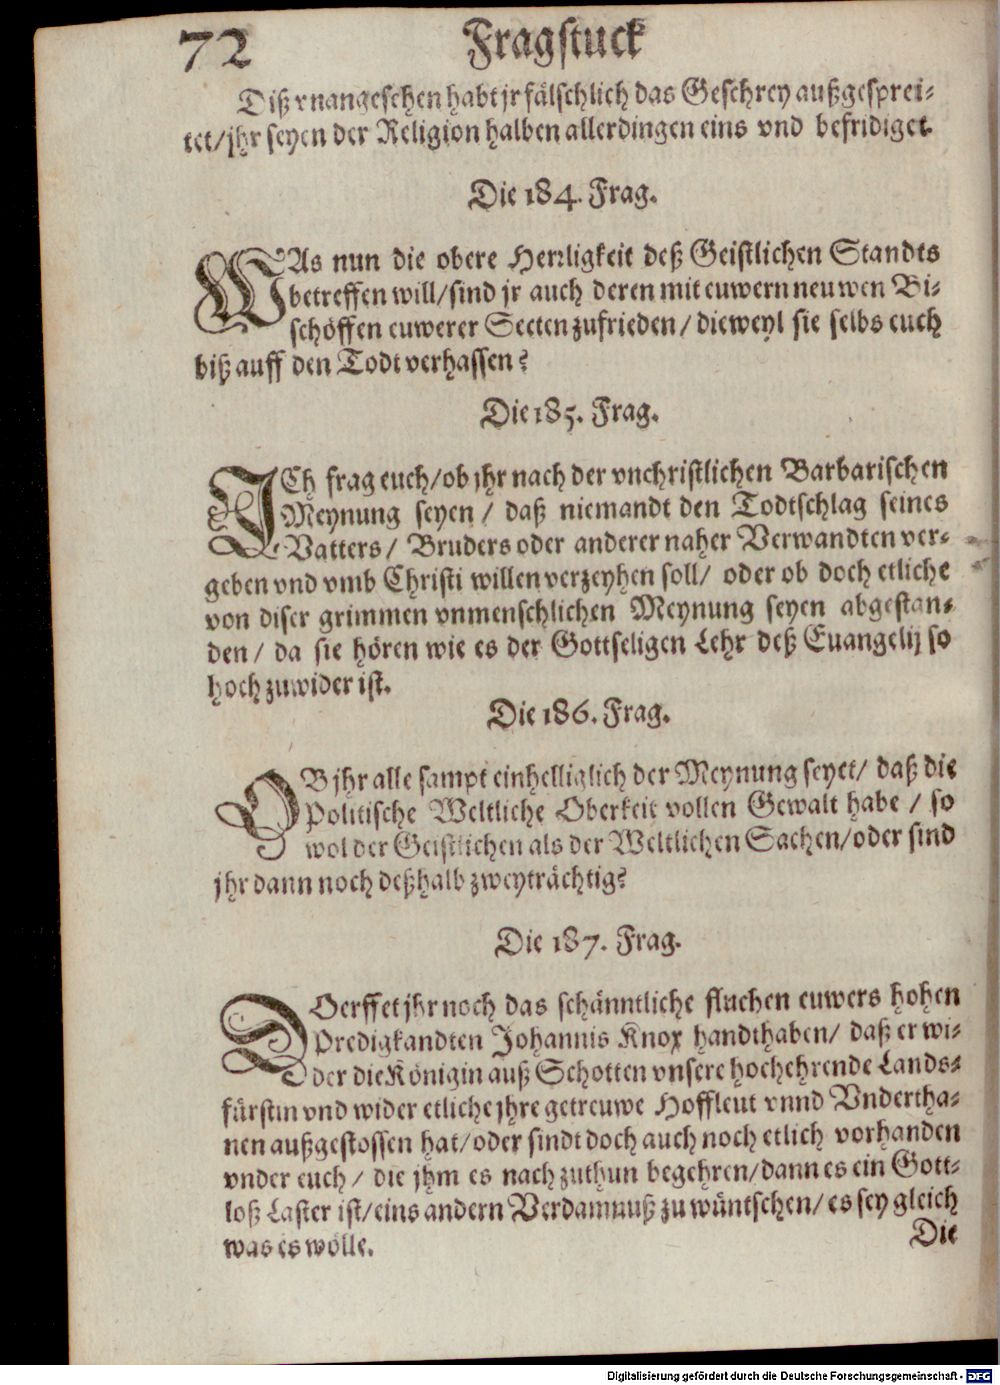 72 Fragstuck
Diß vnangesehen habt jr fälschlich das Geschrey außgesprei-
tet/jhr seyen der Religion halben allerdingen eins vnd befridiget.
Die 184. Frag.
WAs nun die obere Herrligkeit deß Geistlichen Standts
betreffen will/sind jr auch deren mit euwern neuwen Bi-
schöffen euwerer Secten zufrieden/dieweyl sie selbs euch
biß auff den Todt verhassen?
Die 185. Frag.
ICh frag euch/ob jhr nach der vnchristlichen Barbarischen
Meynung seyen/ daß niemandt den Todtschlag seines
Vatters/ Bruders oder anderer naher Verwandten ver-
geben vnd vmb Christi willen verzeyhen soll/ oder ob doch etliche
von diser grimmen vnmenschlichen Meynung seyen abgestan-
den/ da sie hören wie es der Gottseligen Lehr deß Euangelij so
hoch zuwider ist.
Die 186. Frag.
OB jhr alle sampt einhelliglich der Meynung seyet/ daß die
Politische Weltliche Oberkeit vollen Gewalt habe/ so
wol der Geistlichen als der Weltlichen Sachen/oder sind
jhr dann noch deßhalb zweyträchtig?
Die 187. Frag.
DOerffet jhr noch das schänntliche fluchen euwers hohen
Predigkandten Johannis Knox handthaben/ daß er wi-
der die Königin auß Schotten vnsere hochehrende Lands-
fürstin vnd wider etliche jhre getreuwe Hoffleut vnnd Vndertha-
nen außgestossen hat/oder sindt doch auch noch etlich vorhanden
vnder euch/ die jhm es nach zuthun begehren/dann es ein Gott-
loß Laster ist/eins andern Verdamnuß zu wüntschen/es sey gleich
was es wölle.
Die
Digitalisierung gefördert durch die Deutsche Forschungsgemeinschaft - DFG